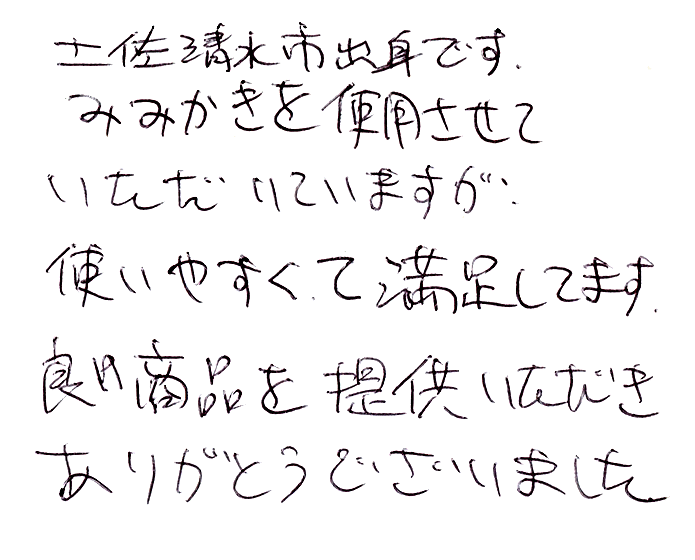 土佐清水市出身です.
みみかきを使用させて
いただいていますが、
使いやすくて満足してます.
良い商品を提供いただき
ありがとうございました